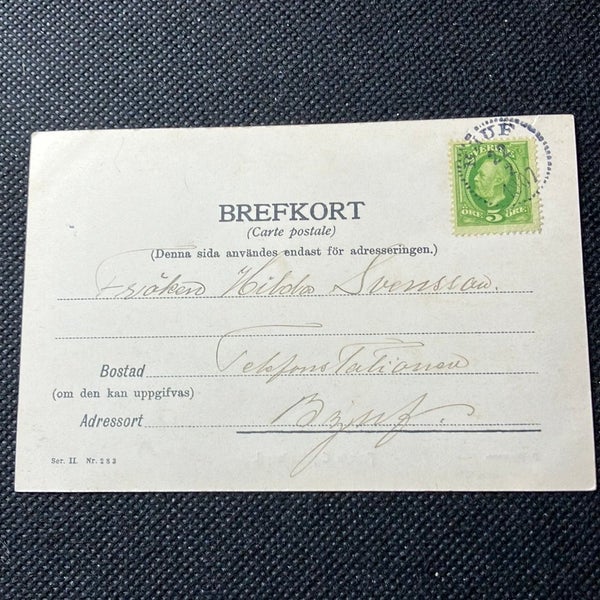 SVERIGE
ÖRE 5 ÖRE
BREFKORT
(Carte postale)
(Denna sida användes endast för adresseringen.)
Fröken Hilda Svensson.
Bostad Telefons Tationen
(om den kan uppgifvas)
Adressort
Ser. II. Nr. 283